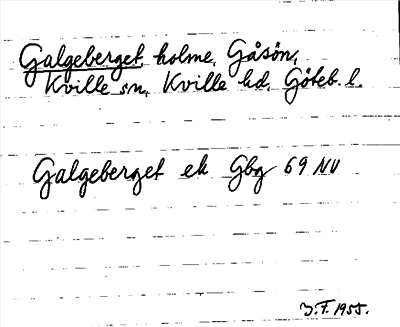 Galgeberget, holme, Gåsön,
Kville sn, Kville hd, Göteb. l.
Galgeberget ek Gbg 69 NV
F. 1955.